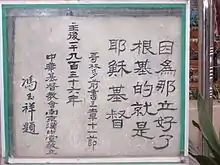 因為那立好了
根基的就是
耶穌基督
哥林多前書三章十一節
主後一千九百三十六年
中華基督教會南京漢中堂立
馮玉祥題